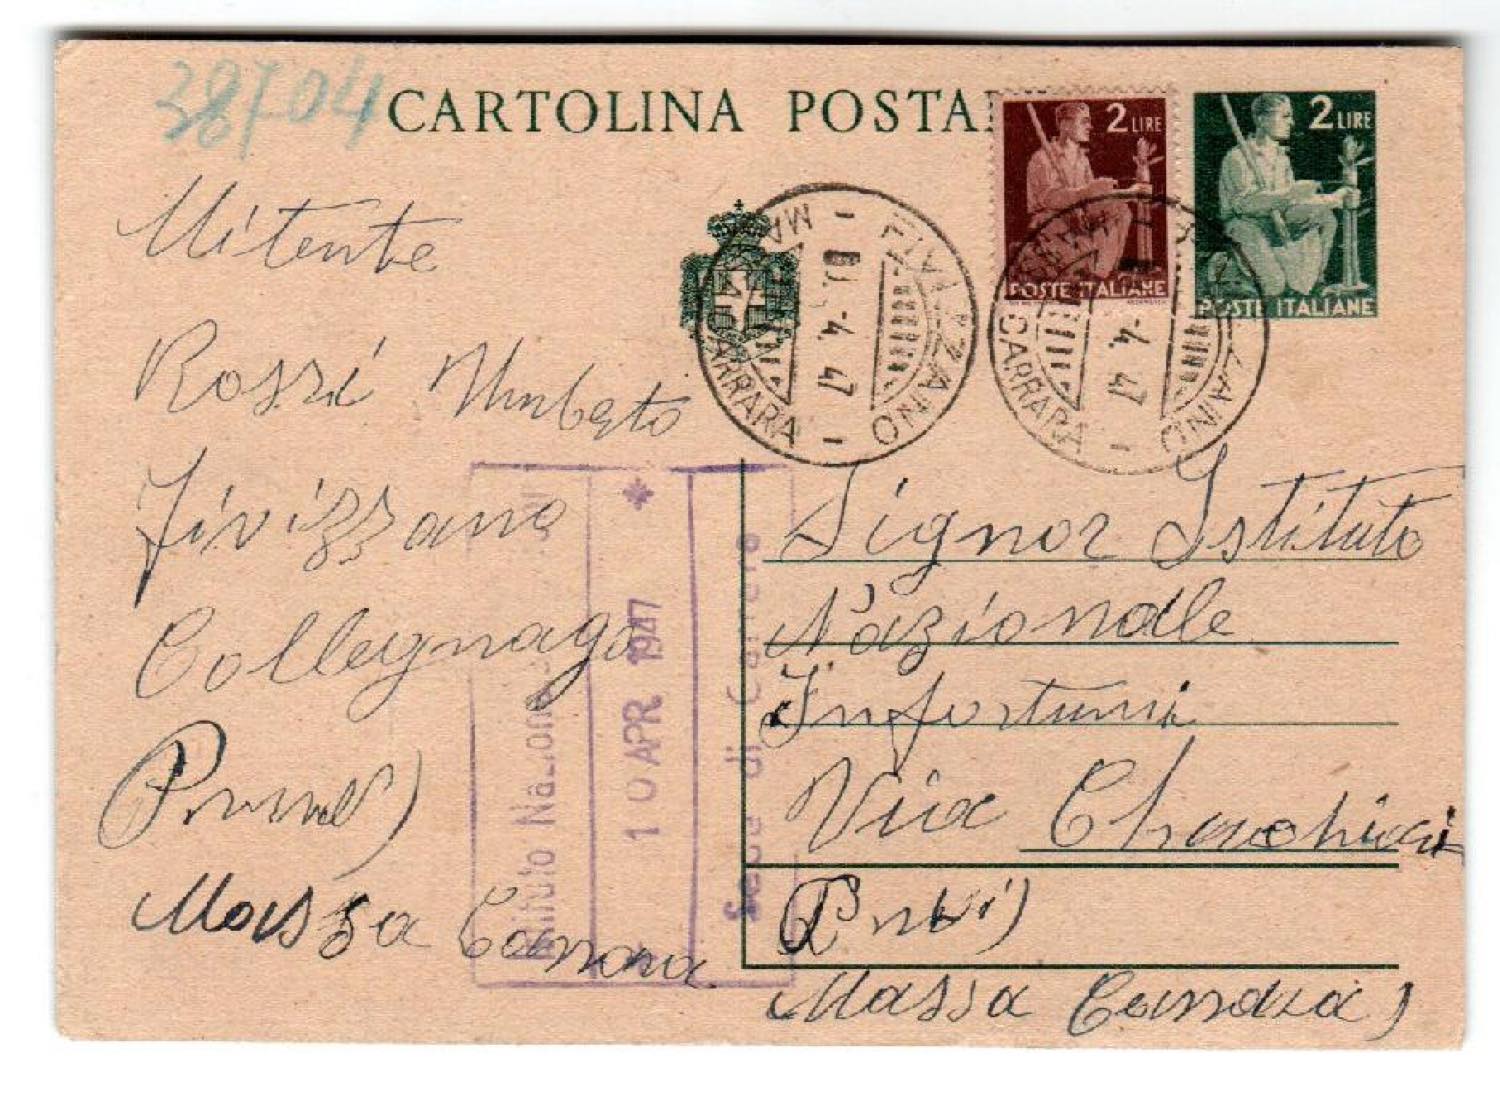 38704
CARTOLINA POSTA
2 LIRE
POSTE ITALIANE
2 LIRE
POSTE ITALIANE
FIVIZZANO
-4. 47
MASSA CARRARA
ZANO
-4. 47
CARRARA
Mitente
Rossi Umberto
Fivizzano
Collegnago
Massa Carrara
Istituto Naziona
* 10 APR 1947
Sede di Carrara
Signor Istituto
Nazionale
Infortuni
Via
Massa Carrara)